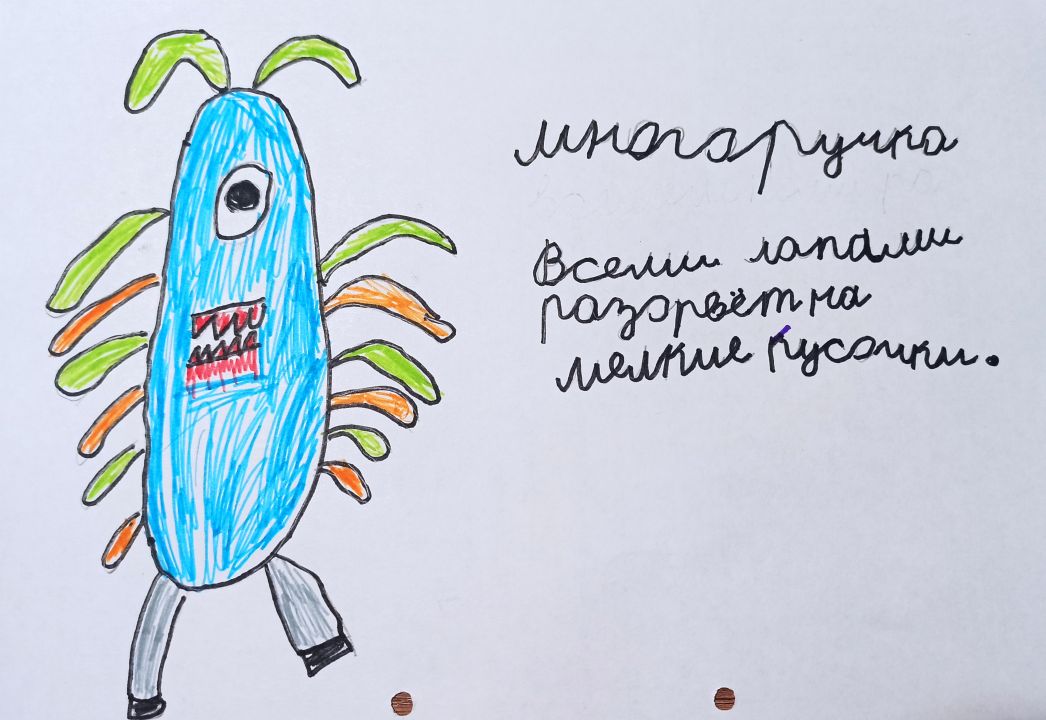 многаручка
Всеми лапами
разорвёт на
мелкие кусочки.